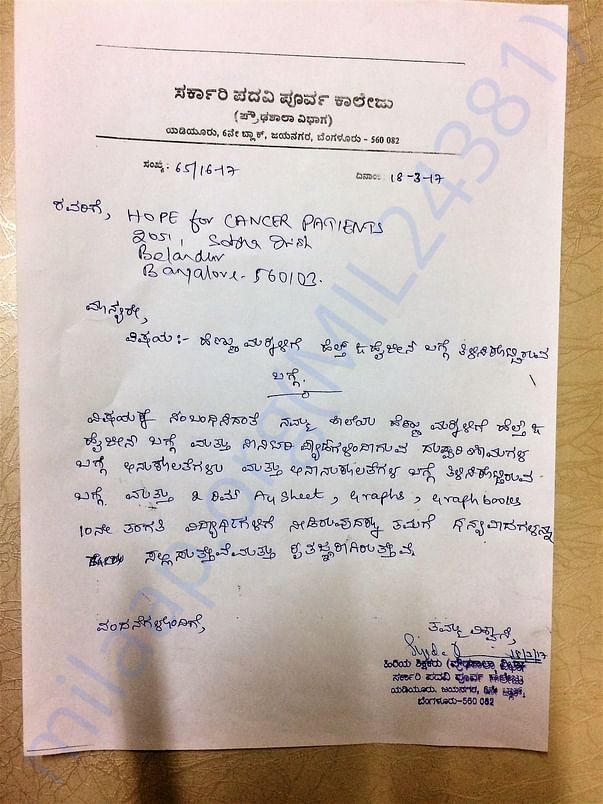 ಸರ್ಕಾರಿ ಪದವಿ ಪೂರ್ವ ಕಾಲೇಜು
(ಪ್ರೌಢಶಾಲಾ ವಿಭಾಗ)
ಯಡಿಯೂರು, 6ನೇ ಬ್ಲಾಕ್, ಜಯನಗರ, ಬೆಂಗಳೂರು - 560 082
ಸಂಖ್ಯೆ: 65/16-17 ದಿನಾಂಕ: 18-3-17
ರವರಿಗೆ, HOPE for CANCER PATIENTS
2051, Sobha
Belandur
Bangalore - 560103.
ಮಾನ್ಯರೇ,
ವಿಷಯ:- ಹೆಣ್ಣು ಮಕ್ಕಳಿಗೆ ಹೆಲ್ತ್ & ಹೈಜೀನ್ ಬಗ್ಗೆ ತಿಳಿಸಿಕೊಟ್ಟಿರುವ
ಬಗ್ಗೆ.
ವಿಷಯಕ್ಕೆ ಸಂಬಂಧಿಸಿದಂತೆ ನಮ್ಮ ಶಾಲೆಯ ಹೆಣ್ಣು ಮಕ್ಕಳಿಗೆ ಹೆಲ್ತ್ &
ಹೈಜೀನ್ ಬಗ್ಗೆ ಮತ್ತು ಸಾನಿಟರಿ ಪ್ಯಾಡ್‌ಗಳಿಂದಾಗುವ ದುಷ್ಪರಿಣಾಮಗಳ
ಬಗ್ಗೆ ಅನುಕೂಲತೆಗಳು ಮತ್ತು ಅನಾನುಕೂಲತೆಗಳ ಬಗ್ಗೆ ತಿಳಿಸಿಕೊಟ್ಟಿರುವ
ಬಗ್ಗೆ ಮತ್ತು 2 ರಿಮ್ A4 Sheet, Graphs, Graph books
10ನೇ ತರಗತಿ ವಿದ್ಯಾರ್ಥಿಗಳಿಗೆ ನೀಡಿರುವುದಕ್ಕಾಗಿ ತಮಗೆ ಧನ್ಯವಾದಗಳನ್ನು
ಸಲ್ಲಿಸುತ್ತೇವೆ ಮತ್ತು ಕೃತಜ್ಞರಾಗಿರುತ್ತೇವೆ.
ವಂದನೆಗಳೊಂದಿಗೆ,
ತಮ್ಮ ವಿಶ್ವಾಸಿ,
18/3/17
ಹಿರಿಯ ಶಿಕ್ಷಕರು (ಪ್ರೌಢಶಾಲಾ ವಿಭಾಗ)
ಸರ್ಕಾರಿ ಪದವಿ ಪೂರ್ವ ಕಾಲೇಜು
ಯಡಿಯೂರು, ಜಯನಗರ, 6ನೇ ಬ್ಲಾಕ್,
ಬೆಂಗಳೂರು-560 082
milaap.org(MIL24381)